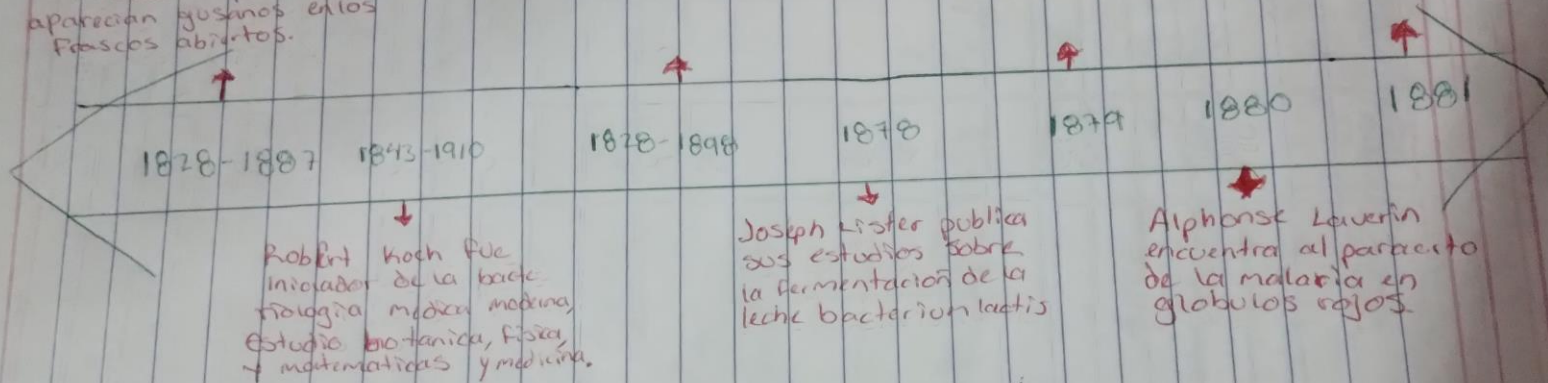 aparecian gusanos en los
frascos abiertos.
1828-1887
1843-1910
1828-1898
1878
1879
1880
1881
Robert Koch fue
iniciador de la bacte
riologia medica moderna,
estudio botanica, fisica,
y matematicas y medicina.
Joseph Lister publica
sus estudios sobre
la fermentacion de la
leche bacterium lactis
Alphonse Laverin
encuentra al paracito
de la malaria en
globulos rojos.